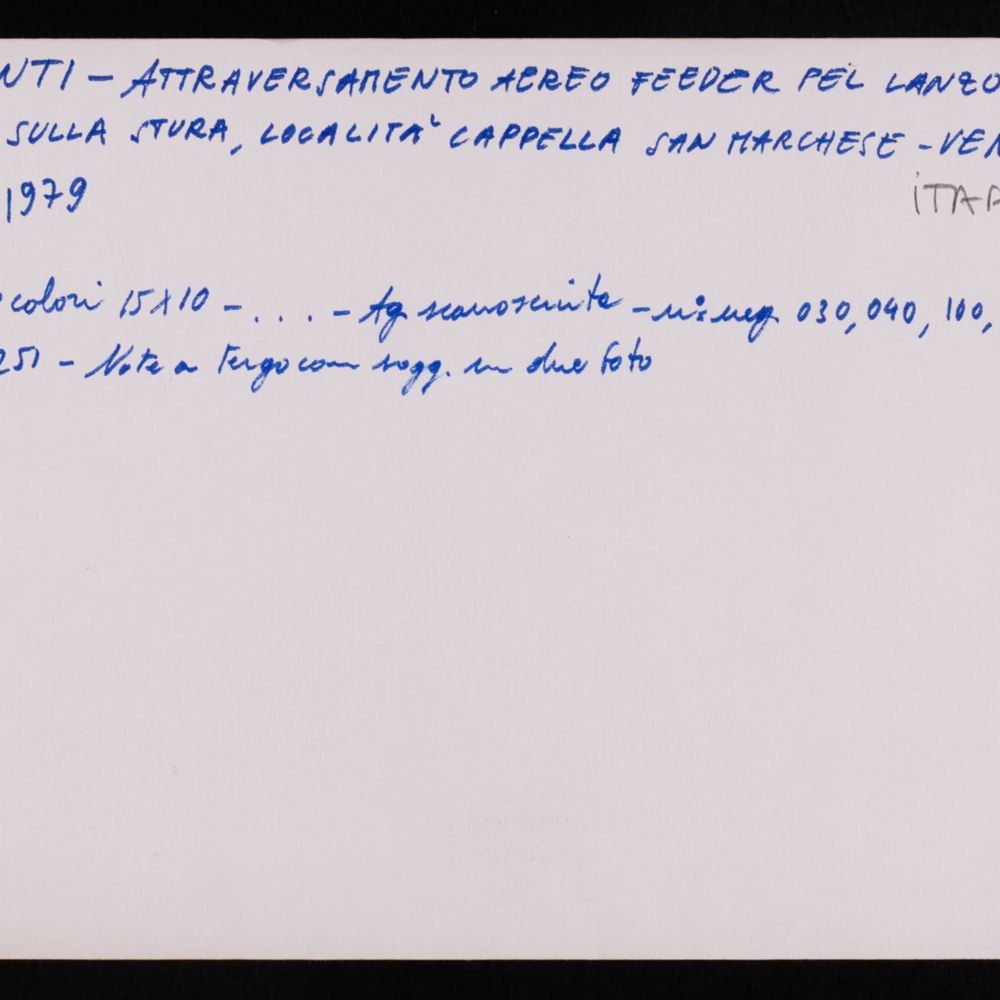 NTI - ATTRAVERSAMENTO AEREO FEEDER PEL LANZO
SULLA STURA, LOCALITA' CAPPELLA SAN MARCHESE - VEN
1979
ITAP
colori 15X10 - . . . - Ag sconosciuta - n° neg. 030, 040, 100,
251 - Note a tergo con sogg. in due foto